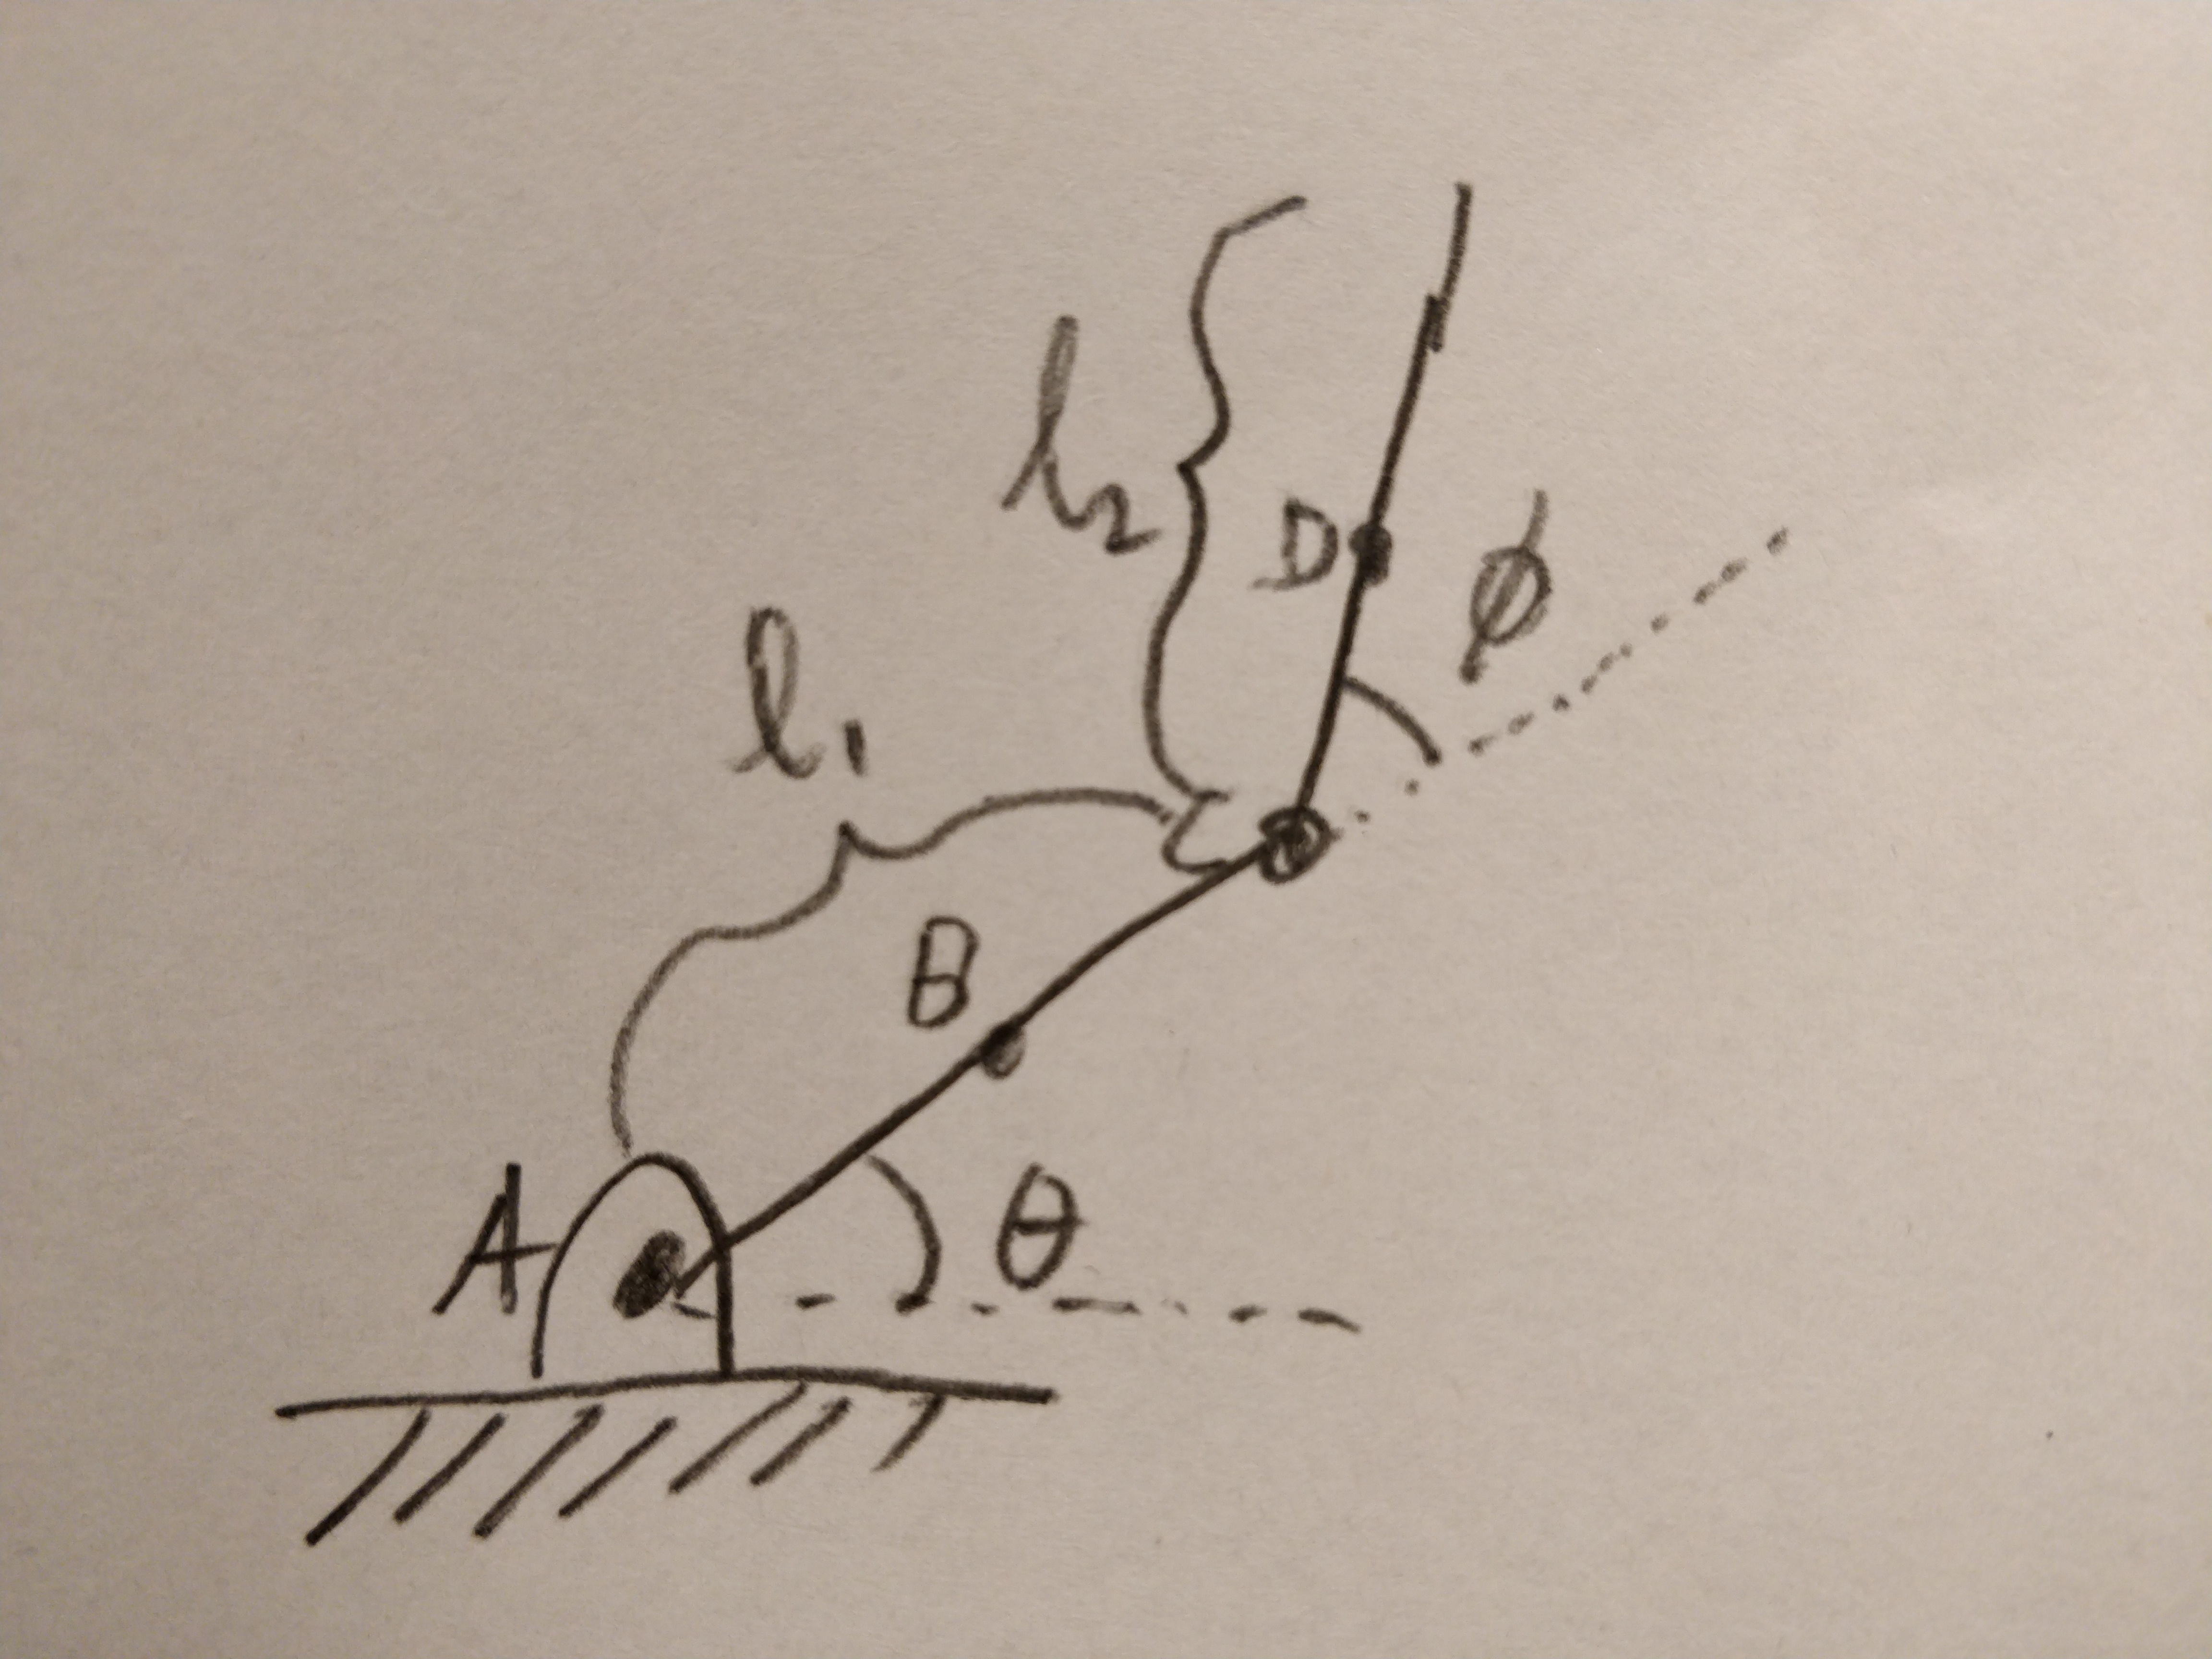 l₂
D
ϕ
l₁
C
B
A
θ